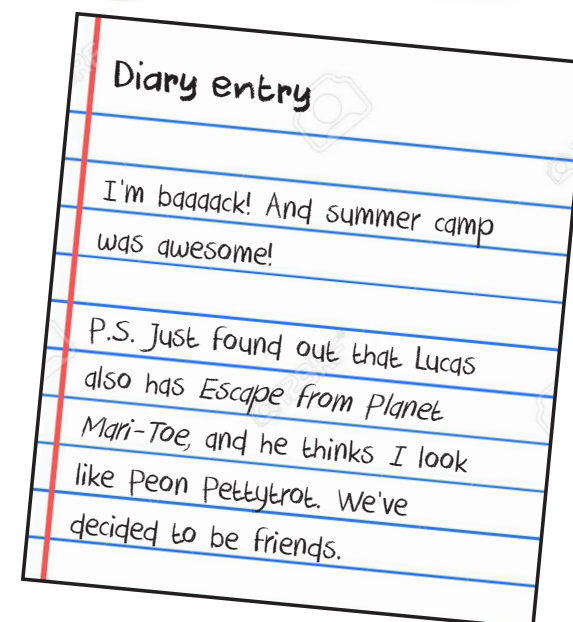 Diary entry
I'm baaaack! And summer camp
was awesome!
P.S. Just found out that Lucas
also has Escape from Planet
Mari-Toe, and he thinks I look
like Peon Pettytrot. We've
decided to be friends.